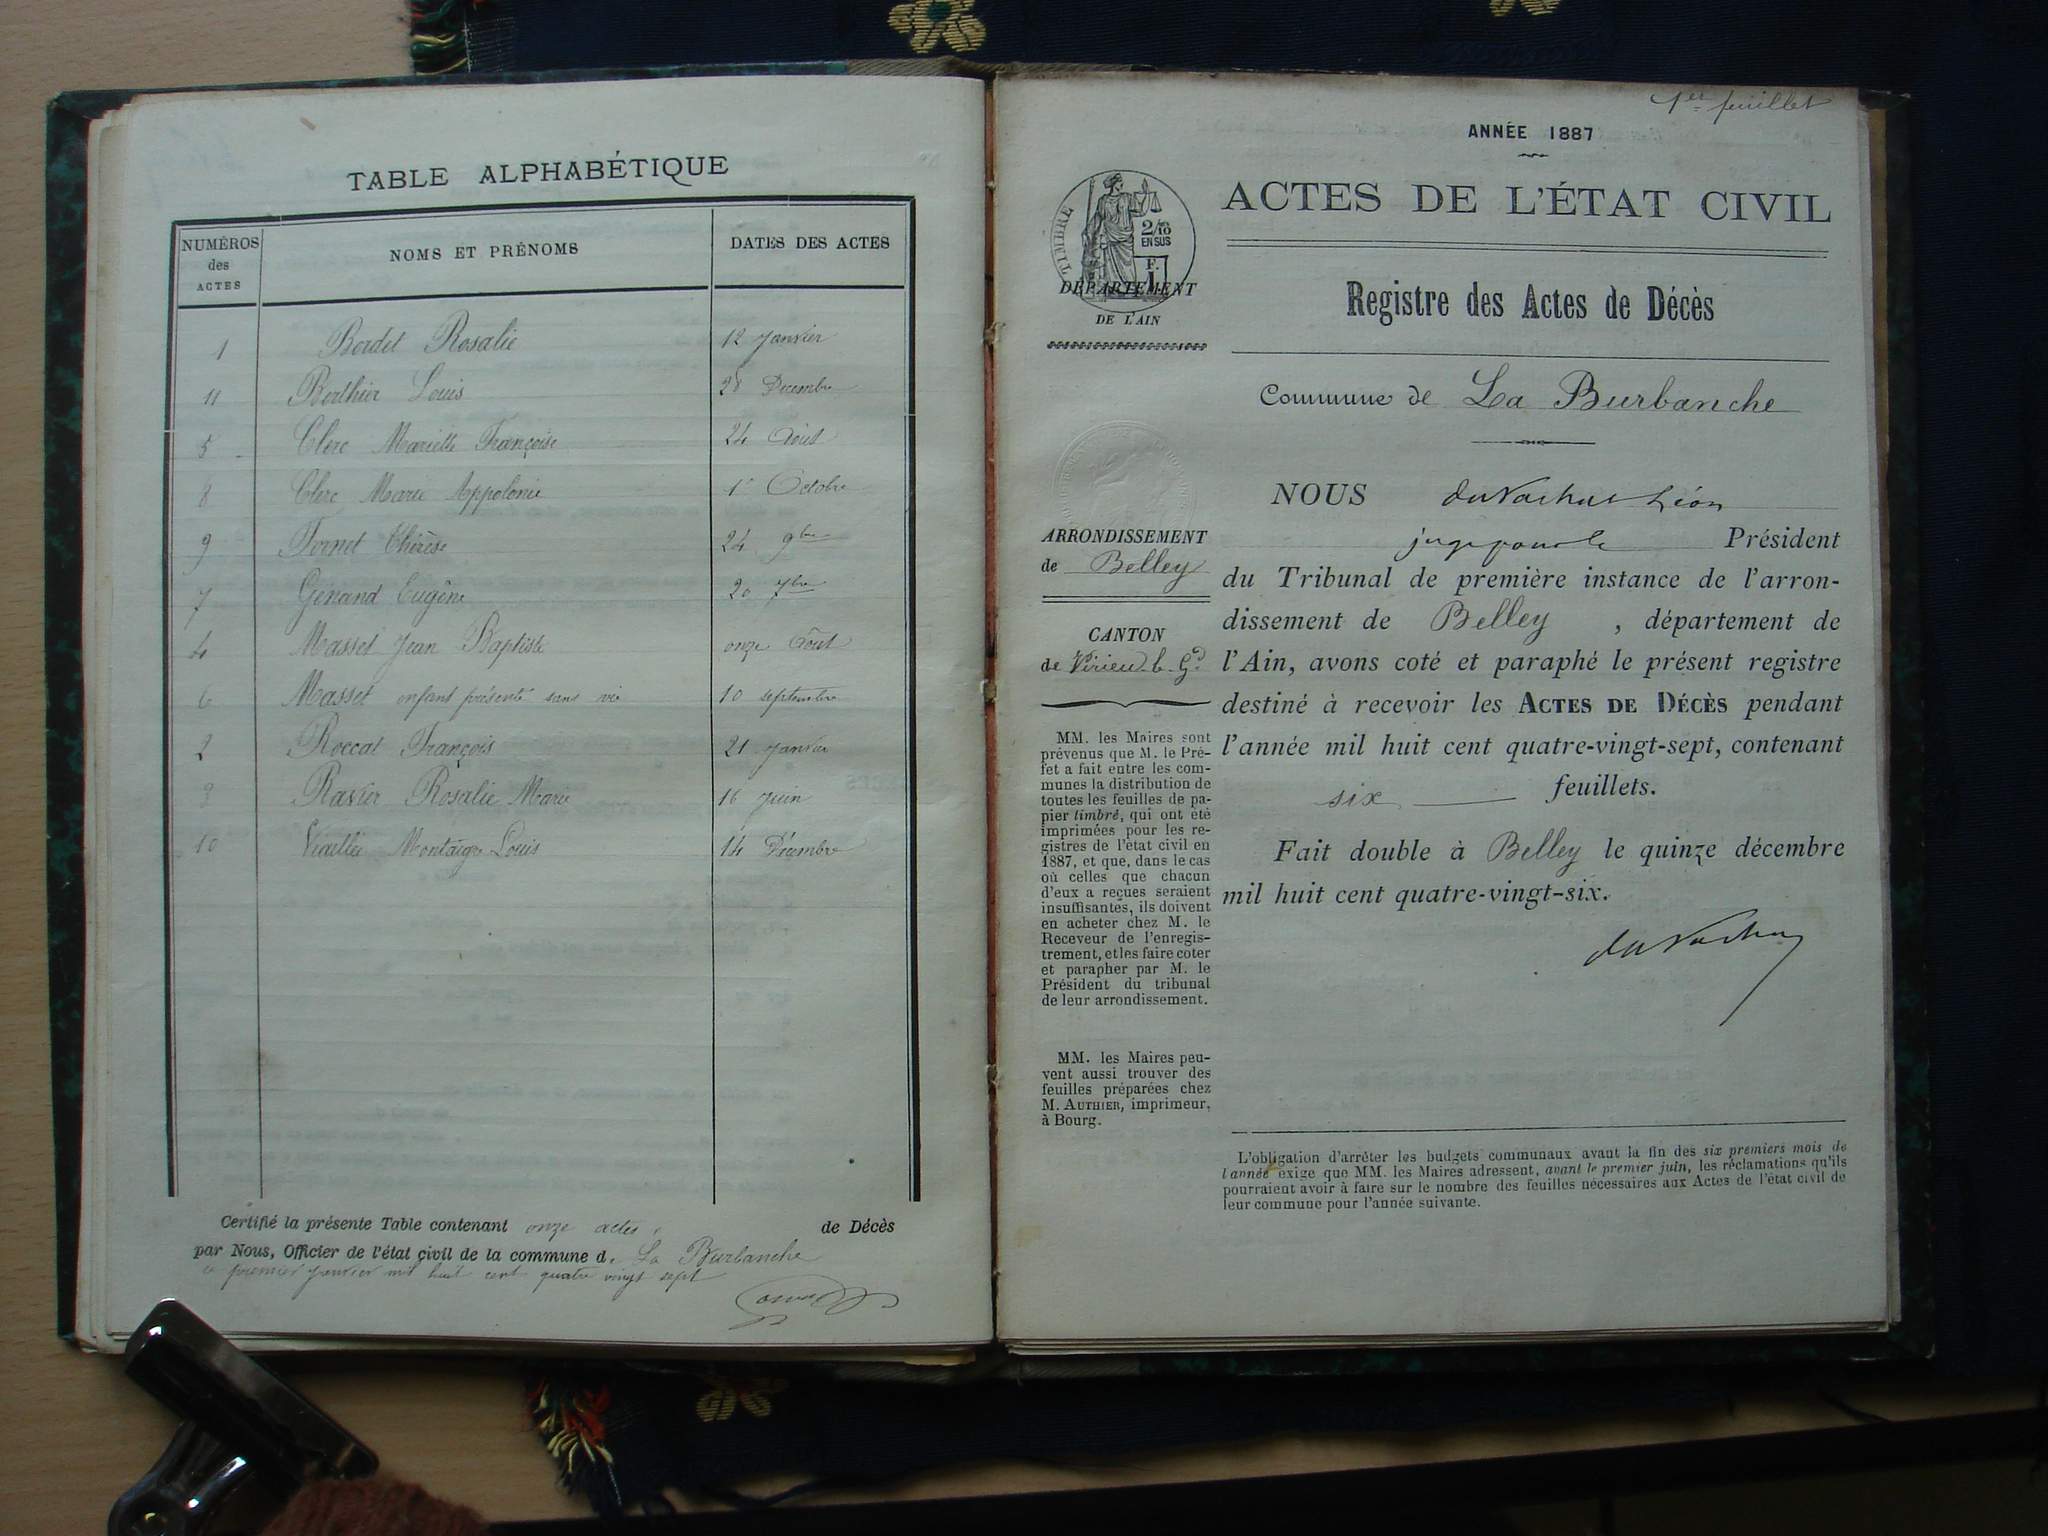 TABLE ALPHABÉTIQUE
NUMÉROS des ACTES NOMS ET PRÉNOMS DATES DES ACTES
1 Bordet Rosalie 12 Janvier
11 Berthier Louis 28 Décembre
5 Clerc Mariette Françoise 24 Août
8 Clerc Marie Appolonie 1r Octobre
9 Fornet Thérèse 24 9bre
7 Génand Eugène 20 7bre
4 Masset Jean Baptiste onze Août
6 Masset enfant présenté sans vie 10 septembre
2 Roccat François 21 Janvier
3 Ravier Rosalie Marie 16 Juin
10 Montaige Louis 14 Décembre
Certifié la présente Table contenant onze actes de Décès
par Nous, Officier de l'état civil de la commune d. La Burbanche
ce premier janvier mil huit cent quatre vingt sept
1er feuillet
ANNÉE 1887
ACTES DE L'ÉTAT CIVIL
TIMBRE
2/10
EN SUS
F.
1
DÉPARTEMENT
DE L'AIN
Registre des Actes de Décès
Commune de La Burbanche
ARRONDISSEMENT
de Belley
CANTON
de Virieu-le-Gd
MM. les Maires sont
prévenus que M. le Pré-
fet a fait entre les com-
munes la distribution de
toutes les feuilles de pa-
pier timbré, qui ont été
imprimées pour les re-
gistres de l'état civil en
1887, et que, dans le cas
où celles que chacun
d'eux a reçues seraient
insuffisantes, ils doivent
en acheter chez M. le
Receveur de l'enregis-
trement, et les faire coter
et parapher par M. le
Président du tribunal
de leur arrondissement.
MM. les Maires peu-
vent aussi trouver des
feuilles préparées chez
M. AUTHIER, imprimeur,
à Bourg.
NOUS Léon
juge pour le Président
du Tribunal de première instance de l'arron-
dissement de Belley, département de
l'Ain, avons coté et paraphé le présent registre
destiné à recevoir les ACTES DE DÉCÈS pendant
l'année mil huit cent quatre-vingt-sept, contenant
six feuillets.
Fait double à Belley le quinze décembre
mil huit cent quatre-vingt-six.
L'obligation d'arrêter les budgets communaux avant la fin des six premiers mois de
l'année exige que MM. les Maires adressent, avant le premier juin, les réclamations qu'ils
pourraient avoir à faire sur le nombre des feuilles nécessaires aux Actes de l'état civil de
leur commune pour l'année suivante.